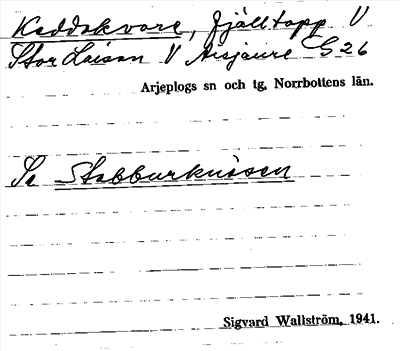 Kaddokvare, fjälltopp V
Stor Laisan V Aisjaure G 26
Arjeplogs sn och tg, Norrbottens län.
Se Stabburknösen
Sigvard Wallström, 1941.